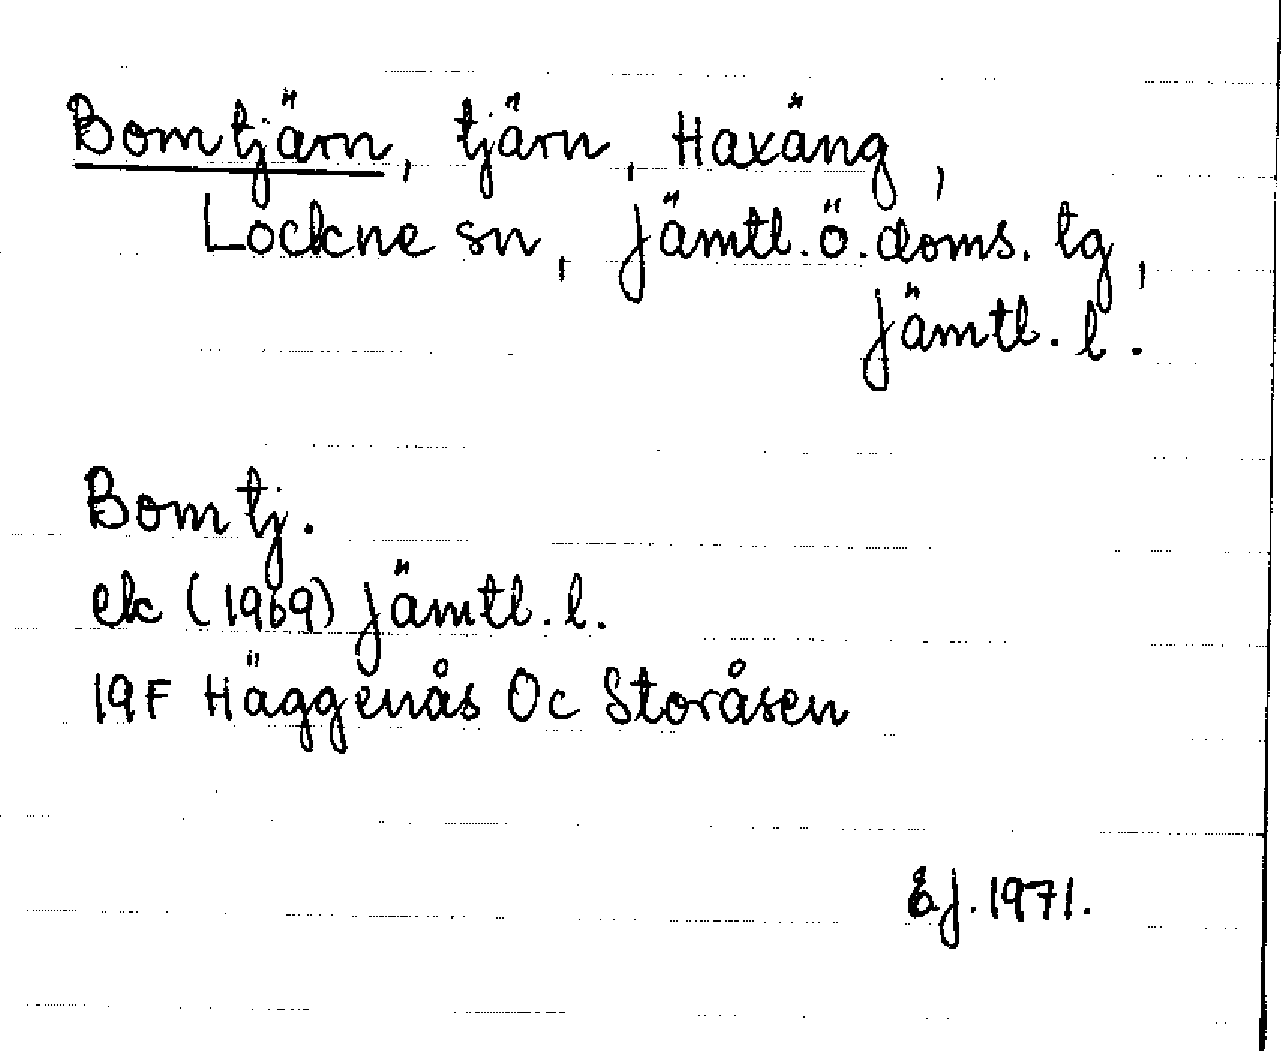 Bomtjärn, tjärn, Haxäng,
Lockne sn, Jämtl. ö. doms. tg,
Jämtl. l.
Bomtj.
ek (1969) Jämtl. l.
19F Häggenås Oc Storåsen
EJ. 1971.